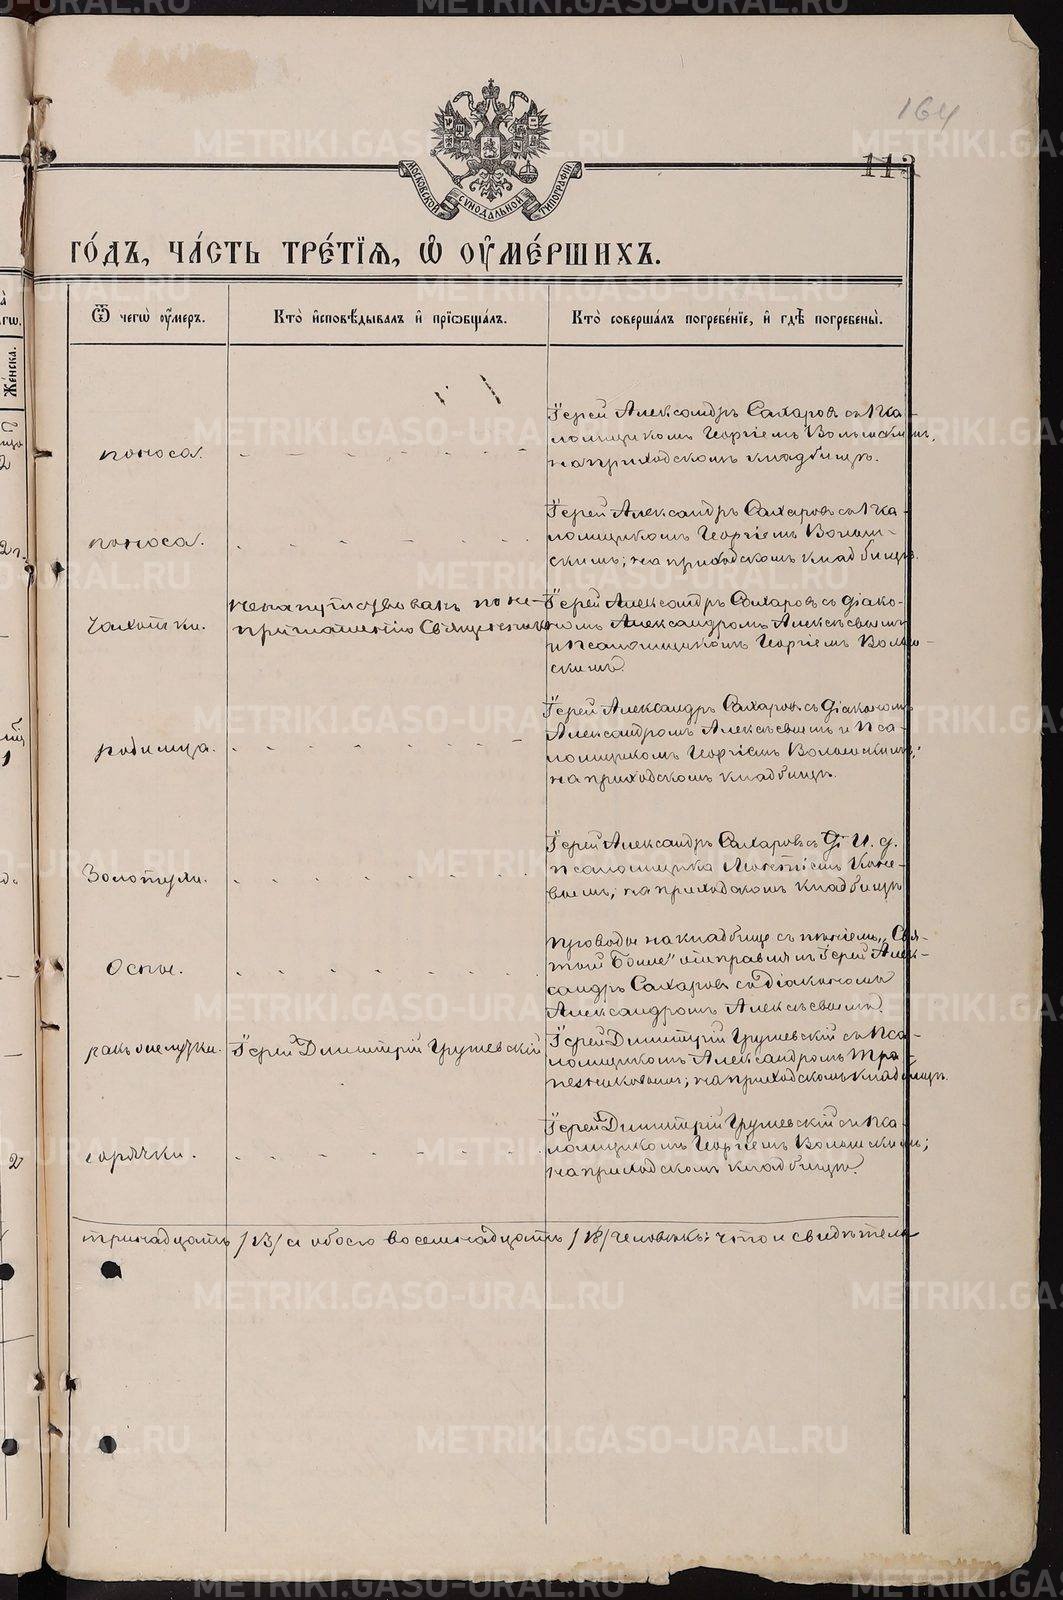 164
113
МОСКОВСКОЙ СѴНОДАЛЬНОЙ ТИПОГРАФІИ
ГО́ДЪ, ЧА́СТЬ ТРЕ́ТІѦ, Ѡ҆ ОУ҆МЕ́РШИХЪ.
Ѿ чегѡ̀ оу҆́меръ.
Кто̀ и҆сповѣ́дывалъ и҆ прїѡбща́лъ.
Кто̀ соверша́лъ погребе́нїе, и҆ гдѣ̀ погребены̀.
Же́нска.
поноса.
Іерей Александръ Сахаровъ съ Пса-
ломщикомъ Георгіемъ Волынскимъ,
на приходскомъ кладбищѣ.
поноса.
Іерей Александръ Сахаровъ съ Пса-
ломщикомъ Георгіемъ Волын-
скимъ; на приходскомъ кладбищѣ.
чахотки.
не напутствованъ по не-
приглашенію Священника
Іерей Александръ Сахаровъ съ діако-
номъ Александромъ Алексѣевымъ
и Псаломщикомъ Георгіемъ Волын-
скимъ.
родимца.
Іерей Александръ Сахаровъ съ діакономъ
Александромъ Алексѣевымъ и Пса-
ломщикомъ Георгіемъ Волынскимъ;
на приходскомъ кладбищѣ.
Золотухи.
Іерей Александръ Сахаровъ съ И. д.
псаломщика
на приходскомъ кладбищѣ
Оспы.
проводы на кладбище съ пѣніемъ „Свя-
тый Боже" отправлялъ Іерей Алек-
сандръ Сахаровъ съ Діакономъ
Александромъ Алексѣевымъ.
ракъ желудка.
Іерей Димитрій Грушевскій
Іерей Димитрій Грушевскій съ Пса-
ломщикомъ Александромъ Тра-
пезниковымъ; на приходскомъ кладбищѣ.
горячки.
Іерей Димитрій Грушевскій съ Пса-
ломщикомъ Георгіемъ Волынскимъ;
на приходскомъ кладбищѣ.
тринадцать /13/ а обоего восемнадцать /18/ человѣкъ: что и свидѣтель
METRIKI.GASO-URAL.RU